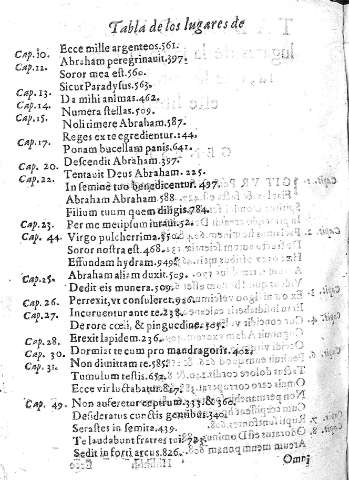 Tabla de los lugares de
Ecce mille argenteos.561.
Cap.10. Abraham peregrinauit.397.
Cap.12. Soror mea est.560.
Sicut Paradysus.563.
Cap.13. Da mihi animas.462.
Cap.14. Numera stellas.509.
Cap.15. Noli timere Abraham.587.
Reges ex te egredientur.144.
Cap.17. Ponam bucellam panis.641.
Descendit Abraham.397.
Cap. 20. Tentauit Deus Abraham.225.
Cap.22. In semine tuo benedicentur.497.
Abraham Abraham.588
Filium tuum quem diligis.784.
Cap.23. Per memetipsum iuraui.52.
Cap. 44. Virgo pulcherrima.
Soror nostra est.468.
Effundam hydram.949.
Cap.25. Abraham aliam duxit.509.
Dedit eis munera.509.
Cap.26. Perrexit, vt consuleret.926.
Cap.27. Incuruentur ante te.238.
De rore cœli, & pinguedine.
Cap.28. Erexit lapidem.236.
Cap. 30. Dormiat tecum pro mandragoris.402.
Cap. 31. Non dimittam te.585.
Tumulum testis.652.
Ecce vir luctabatur.827.
Cap. 49. Non auferetur ceptrum.333.& 360.
Desideratus cunctis gentibus.340.
Seras tes in semita.439.
Te laudabunt fratres tui.
Sedit in forti arcus.826.
Omnj